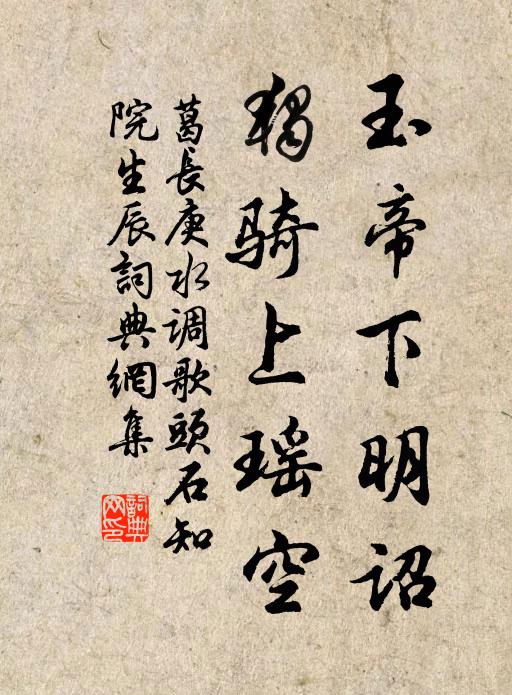 玉帝下明詔
獨骑上瑶空
葛長庚水调歌頭石知
院生辰詞典網集
詞典
网印